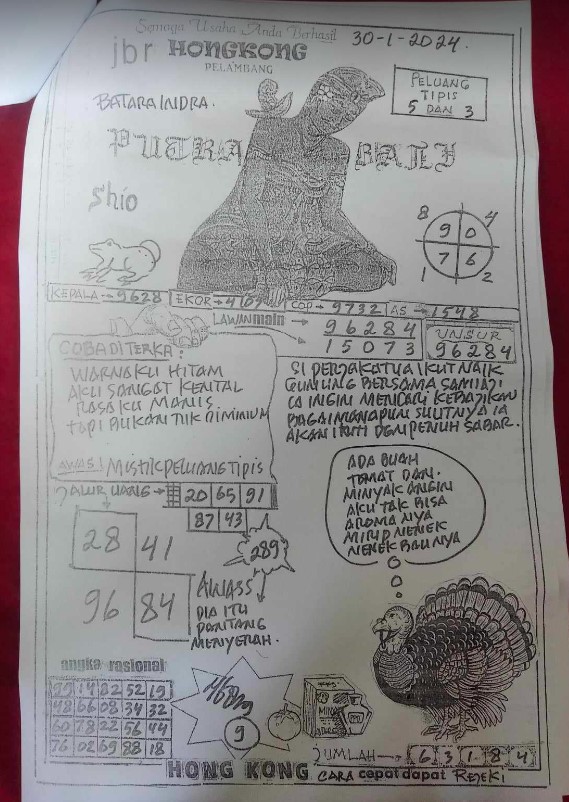 Semoga Usaha Anda Berhasil
jbr HONGKONG
PELAMBANG
30-1-2024.
BATARA INDRA.
PELUANG
TIPIS
5 DAN 3
PUTRA BALI
Shio
8 4
9 0
7 6
1 2
KEPALA → 9628
EKOR → 4109
COP → 9732
AS → 1548
LAWAN main →
9 6 2 8 4
1 5 0 7 3
UNSUR
96284
COBA DITERKA :
WARNAKU HITAM
AKU SANGAT KENTAL
RASAKU MANIS
TAPI BUKAN TUK DIMINUM
AWAS! MISTIK PELUANG TIPIS
SI PERJAKATUA IKUT NAIK
GUNUNG BERSAMA
IA INGIN MENCARI KEBAJIKAN
BAGAIMANAPUN SULITNYA IA
AKAN IKUTI DGN PENUH SABAR.
JALUR UANG → 20 65 91
87 43
28 41
96 84
289
AWASS
DIA ITU
PANTANG
MENYERAH.
ADA BUAH
TOMAT DAN.
MINYAK ANGIN
AKU TAK BISA
AROMA NYA
MIRIP NENEK
NENEK BAUNYA
angka rasional
14 82 52 19
48 66 08 34 32
60 78 22 56 44
76 02 69 88 18
9
JUMLAH → 6 3 1 8 4
HONG KONG CARA cepat dapat REJEKI